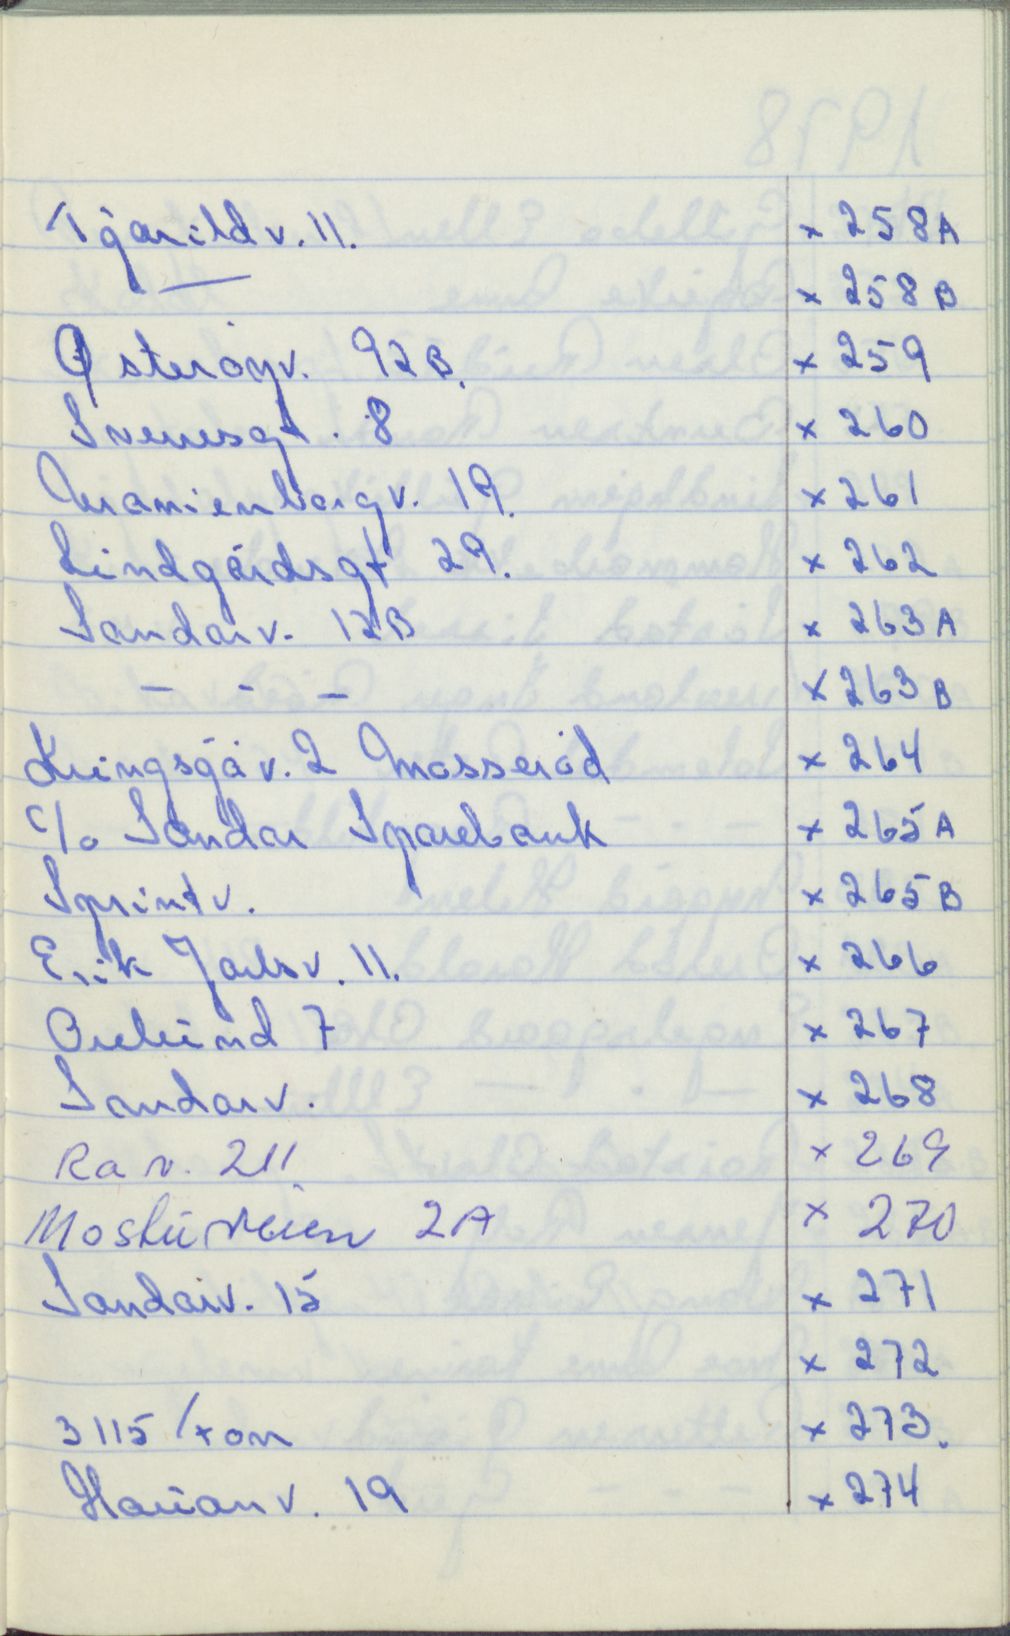 Tjarildv. 11. x 258A
— x 258B
Østerøyv. 92B. x 259
Sveresgt. 8 x 260
Uranienborgv. 19. x 261
Lindgårdsgt 29. x 262
Sandarv. 12B x 263A
— - — x 263B
Kringsjåv. 2 Mosserød x 264
c/o Sandar Sparebank x 265A
Sprintv. x 265B
Erik Jarlsv. 11. x 266
Orelund 7 x 267
Sandarv. x 268
Rav. 211. x 269
Moskuveien 2A x 270
Sandarv. 15 x 271
x 272
3115 Tøn x 273.
Hauanv. 19 x 274